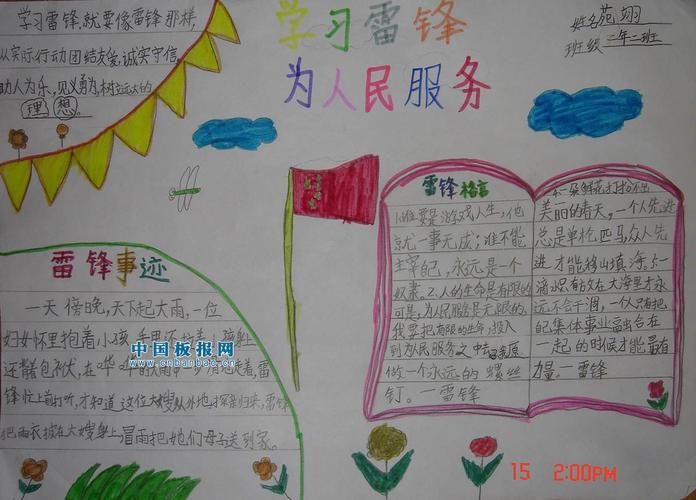 学习雷锋
为人民服务
姓名苑翊
班级二年二班
学习雷锋,就要像雷锋那样,
从实际行动团结友爱,诚实守信,
助人为乐,见义勇为,树远大的
理想
雷锋事迹
一天傍晚,天下起大雨,一位
妇女怀里抱着小孩,手里还
还背着包袱,在哗哗的大雨中
锋忙上前打听,才知道这位大嫂从外地才探亲归来,雷锋
把雨衣披在大嫂身上,冒雨把她们母子送到家。
雷锋格言
1.谁要是游戏人生,他
就一事无成;谁不能
主宰自己,永远是一个
奴隶。2.人的生命是有限的
可是,为人民服务是无限的,
我要把有限的生命,投入
到为民服务之中去
做一个永远的螺丝
钉。一雷锋
4.一朵鲜花打扮不出
美丽的春天,一个人先进
总是单枪匹马,众人先
进才能移山填海。5.一
滴水只有放在大海里才永
远不会干涸,一个人只有把
自己和集体事业融合在
一起的时候才能最有
力量一雷锋
中国板报网
www.cnbanbao.cn
15 2:00PM